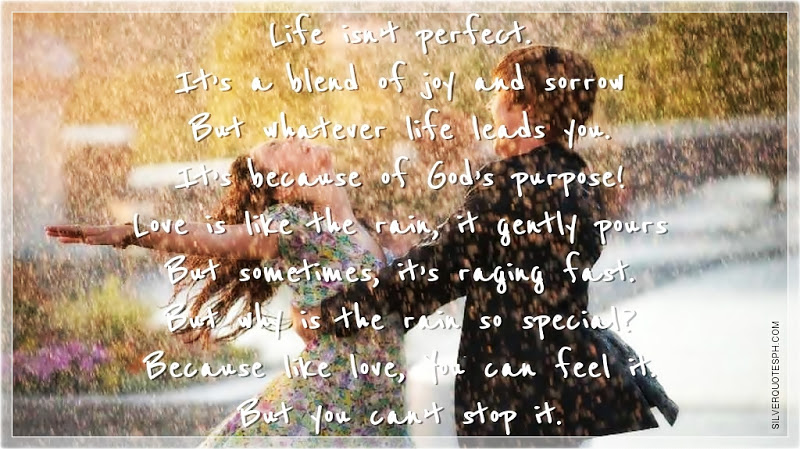 Life isn't perfect.
It's a blend of joy and sorrow
But whatever life leads you.
It's because of God's purpose!
Love is like the rain, it gently pours
But sometimes, it's raging fast.
But why is the rain so special?
Because like love, You can feel it.
But you can't stop it.
SILVERQUOTESPH.COM